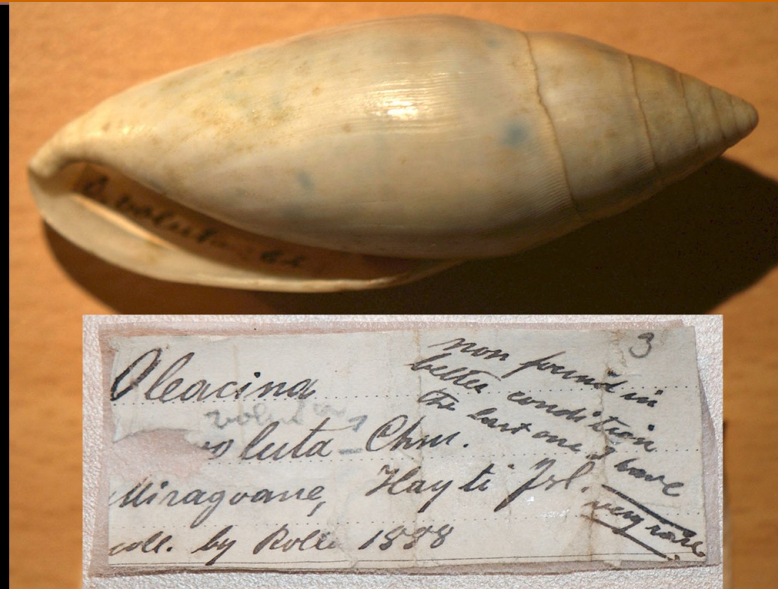 O. voluta Ch
Oleacina
voluta - Chm.
Miragoane, Hayti Isl.
coll. by Rolle 1888
3
non found in
better condition
the last one I have
very rare